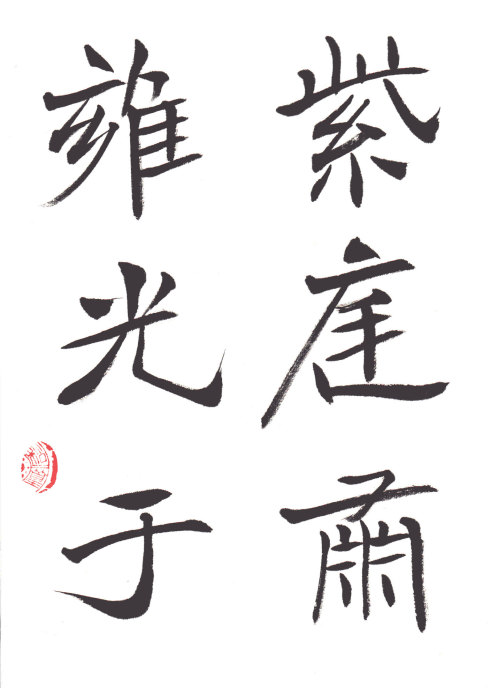 紫庭肅
雍光于